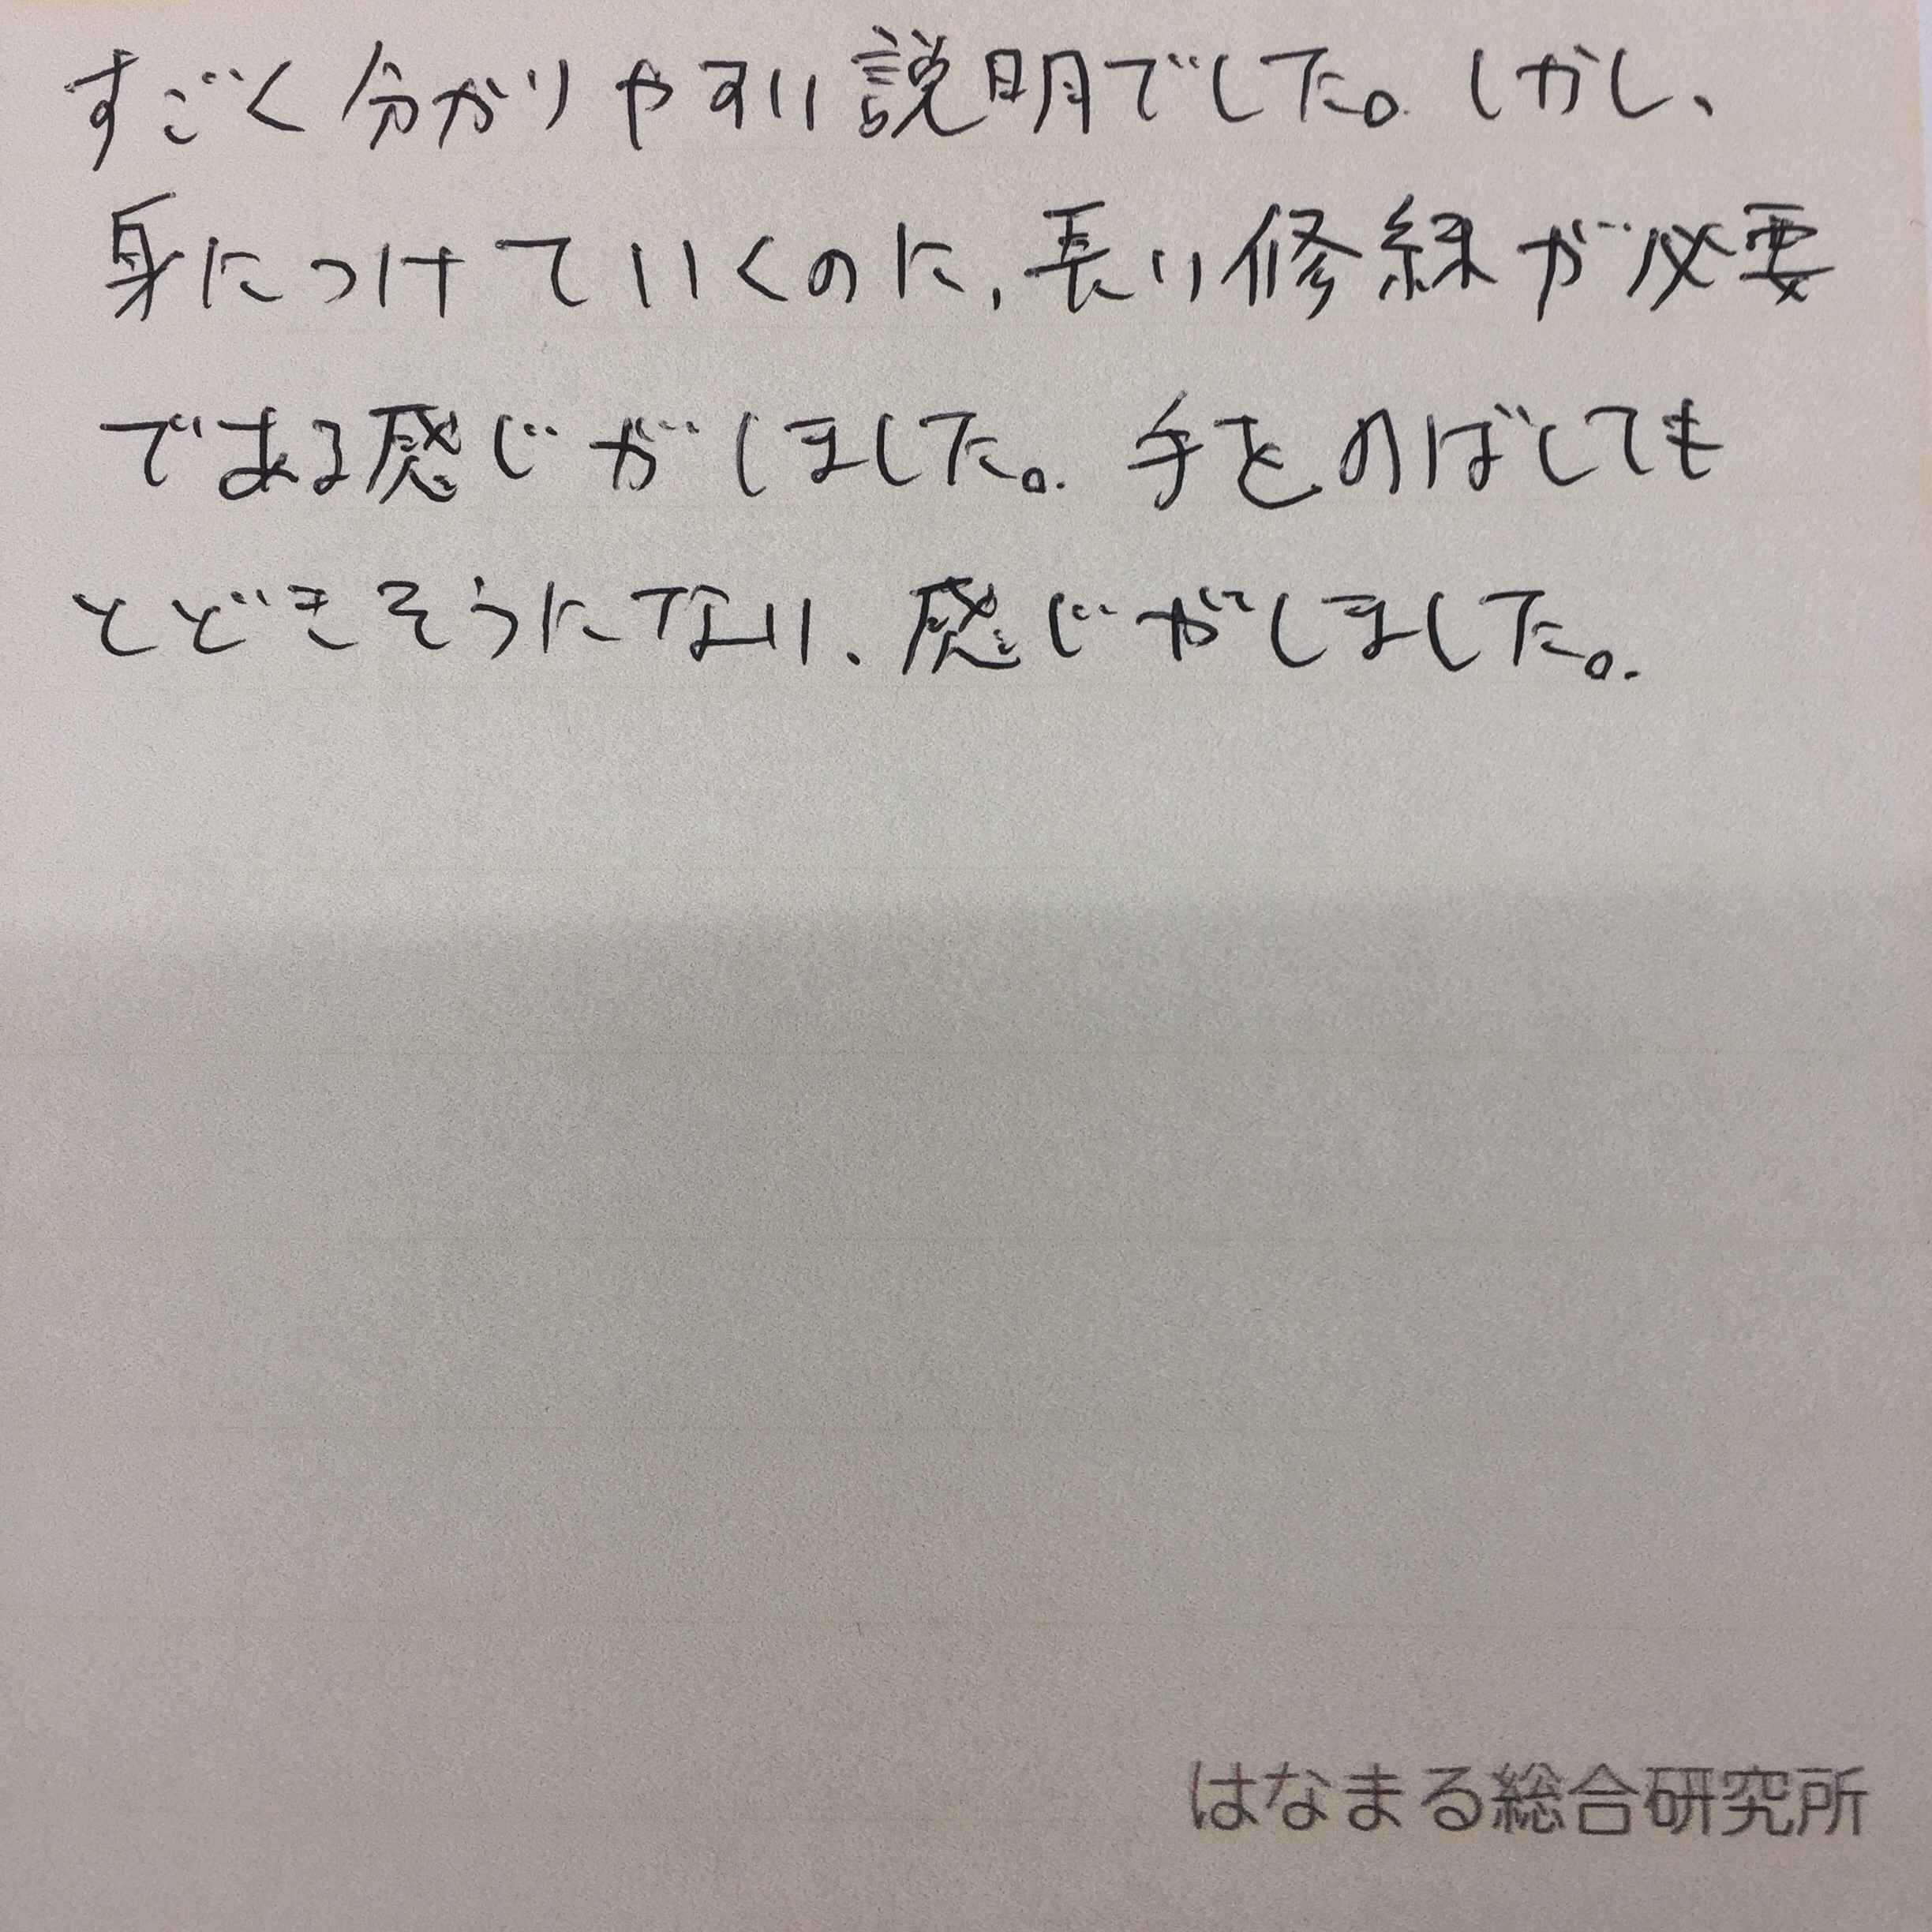 すごく分かりやすい説明でした。しかし、
身につけていくのに、長い修練が必要
である感じがしました。手をのばしても
とどきそうにない、感じがしました。
はなまる総合研究所